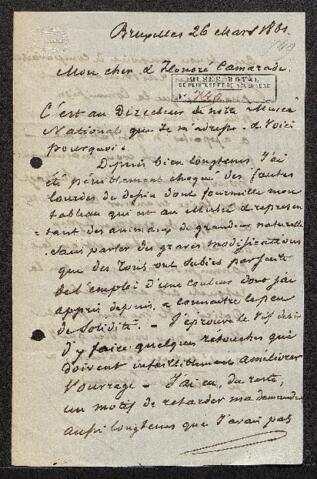 Bruxelles 26 Mars 1861.
Mon cher & Honoré Camarade.
MUSÉE ROYAL
DE PEINTURE ET DE SCULPTURE
C'est au Directeur de notre Musée
National que je m'adresse. & Voici
pourquoi.
Depuis bien longtems j'ai
été péniblement choqué des fautes
lourdes de dessin dont fourmille mon
tableau qui est au Musée & représen
tant des animaux de grandeur naturelle
sans parler des graves modifications
que des Tons ont subies par suite
de l'emploi d'une couleur dont j'ai
appris depuis, à connaître le peu
de Solidité. — J'éprouve le vif désir
d'y faire quelques retouches qui
doivent infailliblement améliorer
l'ouvrage — J'ai eu, du reste,
un motif de retarder ma demande
aussi longtems que j'avais pas